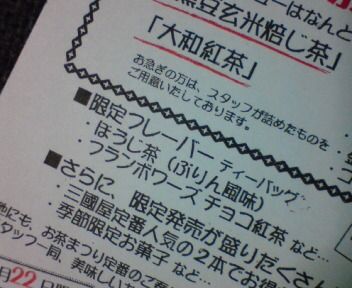 ューはなんと
黒豆玄米焙じ茶」
「大和紅茶」
お急ぎの方は、スタッフが詰めたものを
ご用意いたしております。
■限定フレーバー ティーバッグ
・ほうじ茶(ぷりん風味)
・フランボワーズ チョコ紅茶 など…
■さらに、限定発売が盛りだくさん
・三國屋定番人気の2本でお得
・季節限定お菓子 など…
他にも、お茶まつり定番のご
タッフ一同、美味しいお
月22日